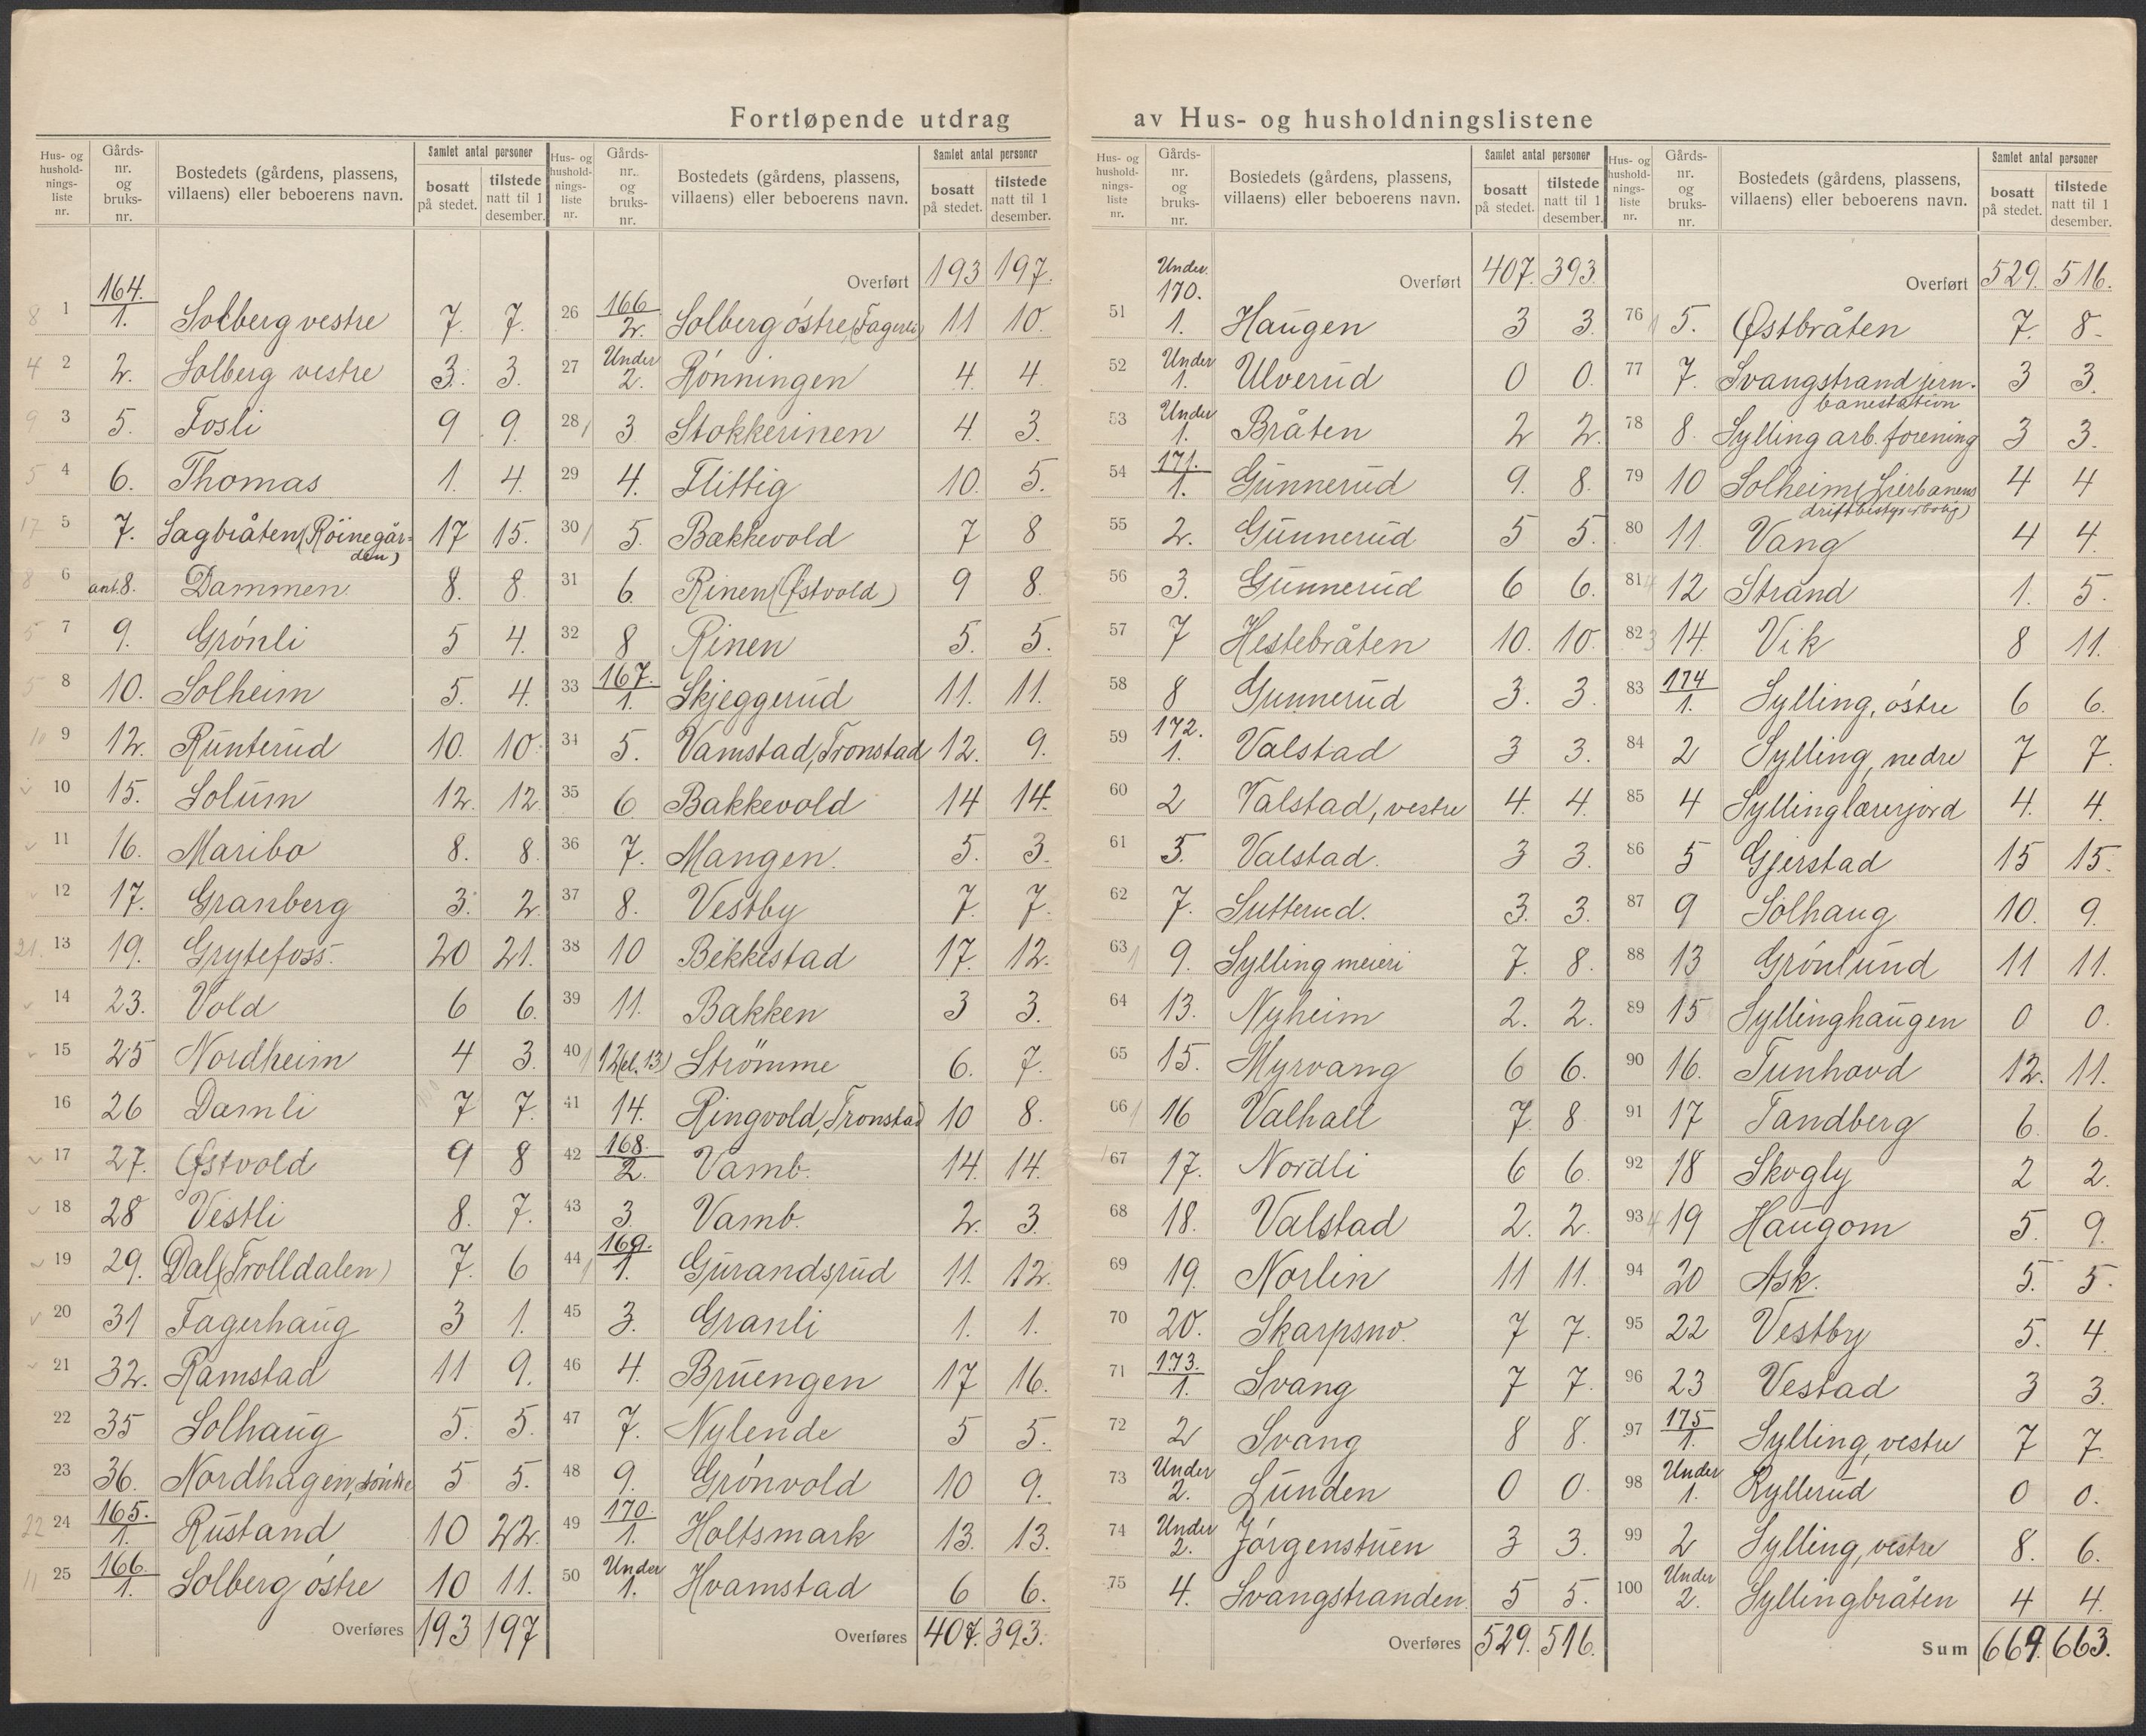 Fortløpende utdrag av Hus- og husholdningslistene
Hus- og husholdnings-liste nr. | Gårds-nr. og bruks-nr. | Bostedets (gårdens, plassens, villaens) eller beboerens navn. | Samlet antal personer | bosatt på stedet. | tilstede natt til 1 desember.
1 164./1. Solberg vestre 7. 7.
2 2. Solberg vestre 3. 3.
3 5. Fosli 9 9.
4 6. Thomas 1. 4.
5 7. Sagbråten (Röinegår-
den) 17 15.
6 ant. 8. Dammen 8. 8.
7 9. Grónli 5 4.
8 10. Solheim 5. 4.
9 12. Runterud 10. 10.
10 15. Solum 12. 12.
11 16. Maribo 8. 8.
12 17. Granberg 3. 2.
13 19. Grytefoss. 20 21.
14 23. Vold 6 6.
15 25 Nordheim 4 3.
16 26 Damli 7 7.
17 27. Østvold 9 8
18 28 Vestli 8. 7.
19 29. Dal (Trolldalen) 7. 6
20 31 Fagerhaug 3 1.
21 32. Ramstad 11 9.
22 35 Solhaug 5. 5.
23 36. Nordhagen, söndre 5 5.
24 165./1. Rustand 10 22.
25 166./1. Solberg óstre 10 11.
Overføres 193 197
Hus- og husholdnings-liste nr. | Gårds-nr. og bruks-nr. | Bostedets (gårdens, plassens, villaens) eller beboerens navn. | Samlet antal personer | bosatt på stedet. | tilstede natt til 1 desember.
Overført 193 197.
26 166/2. Solberg óstre, (Fagerli) 11 10.
27 Under 2. Rónningen 4. 4.
28 3 Stokkerinen 4. 3.
29 4. Flittig 10. 5.
30 5. Bakkevold 7 8
31 6. Rinen (Østvold) 9 8.
32 8 Rinen 5. 5.
33 167./1. Skjeggerud 11. 11.
34 5. Vamstad, Tronstad 12. 9.
35 6 Bakkevold 14 14.
36 7. Mangen. 5. 3.
37 8. Vestby 7. 7.
38 10 Bekkestad 17. 12.
39 11. Bakken 3 3.
40 12 (el. 13) Strömme 6. 7.
41 14. Ringvold, Tronstad 10 8.
42 168./2. Vamb. 14. 14.
43 3. Vamb. 2. 3
44 169./1. Gurandsrud 11. 12.
45 3. Granli 1. 1.
46 4. Bruengen 17 16.
47 7. Nylende 5 5.
48 9. Grónvold 10 9.
49 170./1. Holtsmark 13. 13.
50 Under 1. Hvamstad 6 6.
Overføres 407. 393.
Hus- og husholdnings-liste nr. | Gårds-nr. og bruks-nr. | Bostedets (gårdens, plassens, villaens) eller beboerens navn. | Samlet antal personer | bosatt på stedet. | tilstede natt til 1 desember.
Overført 407. 393.
51 Under 170. 1. Haugen 3 3.
52 Under 1. Ulverud 0 0.
53 Under 1. Bråten 2 2.
54 171./1. Gunnerud 9. 8.
55 2. Gunnerud 5 5.
56 3. Gunnerud 6 6.
57 7 Hestebråten 10. 10.
58 8 Gunnerud 3. 3.
59 172./1. Valstad 3 3.
60 2 Valstad, vestre 4. 4.
61 5. Valstad. 3 3.
62 7. Sutterud. 3. 3.
63 9. Sylling meieri 7. 8.
64 13. Nyheim 2. 2.
65 15. Myrvang 6 6.
66 16 Valhall 7. 8.
67 17. Nordli 6 6.
68 18. Valstad 2. 2.
69 19. Norlin 11 11.
70 20. Skarpsno. 7 7.
71 173./1. Svang 7 7.
72 2 Svang 8 8.
73 Under 2. Lunden 0 0.
74 Under 2. Jórgenstuen 3 3.
75 4. Svangstranden 5 5.
Overføres 529. 516.
Hus- og husholdnings-liste nr. | Gårds-nr. og bruks-nr. | Bostedets (gårdens, plassens, villaens) eller beboerens navn. | Samlet antal personer | bosatt på stedet. | tilstede natt til 1 desember.
Overført 529. 516.
76 5. Østbråten 7. 8
77 7. Svangstrand jern-
banestation 3 3.
78 8. Sylling arb. forening 3 3.
79 10 Solheim (Lierbanens
driftbestyrerbolig) 4 4
80 11. Vang 4 4.
81 12 Strand 1. 5.
82 14. Vik 8 11.
83 174/1. Sylling, óstre 6 6.
84 2 Sylling, nedre 7 7.
85 4 Syllinglærerjord 4. 4.
86 5 Gjerstad 15 15.
87 9 Solhaug 10. 9.
88 13 Grónlund 11 11.
89 15 Syllinghaugen 0 0.
90 16. Tunhovd 12. 11.
91 17 Tandberg 6. 6.
92 18 Skogly 2 2.
93 19 Haugom 5. 9.
94 20 Ask. 5. 5.
95 22 Vestby 5. 4.
96 23 Vestad 3 3.
97 175/1. Sylling, vestre 7 7.
98 Under 1. Ryllerud 0 0.
99 2 Sylling, vestre 8. 6.
100 Under 2. Syllingbråten 4 4.
Sum 669. 663.